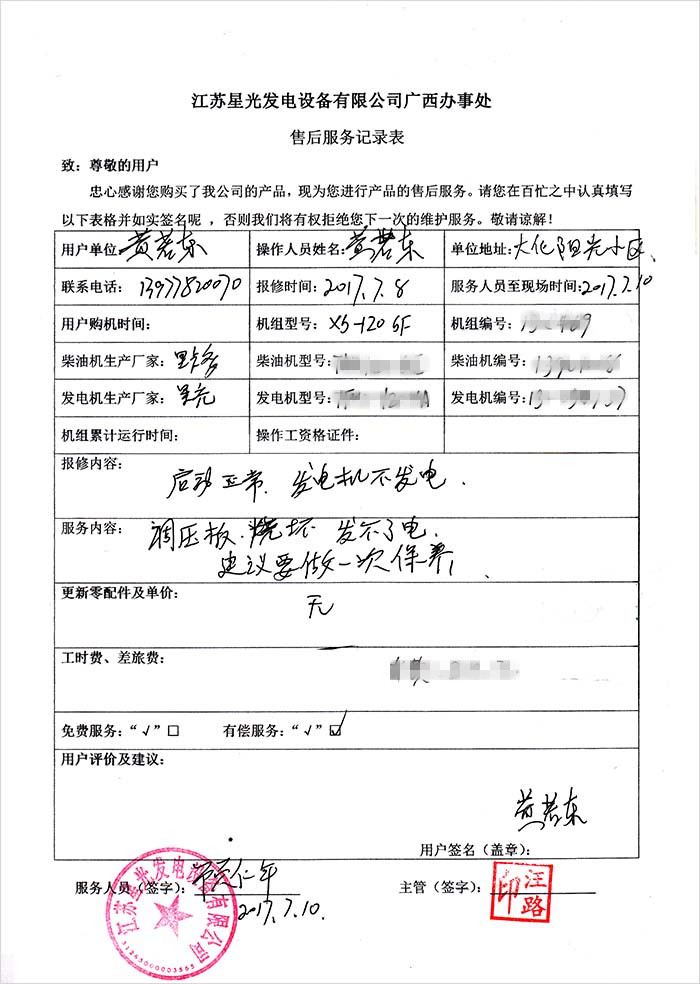 江苏星光发电设备有限公司广西办事处
售后服务记录表
致：尊敬的用户
忠心感谢您购买了我公司的产品，现为您进行产品的售后服务。请您在百忙之中认真填写
以下表格并如实签名呢 ，否则我们将有权拒绝您下一次的维护服务。敬请谅解！
用户单位 黄若东 操作人员姓名：黄若东 单位地址：大化阳光小区
联系电话：13977820070 报修时间：2017.7.8 服务人员至现场时间：2017.7.10
用户购机时间： 机组型号：XG-120GF 机组编号：
柴油机生产厂家： 柴油机型号： 柴油机编号：
发电机生产厂家：星光 发电机型号： 发电机编号：
机组累计运行时间： 操作工资格证件：
报修内容：
启动正常．发电机不发电．
服务内容：
调压板．烧坏 发不了电．
建议要做一次保养，
更新零配件及单价：
无
工时费、差旅费：
免费服务：“√”□ 有偿服务：“√”☑
用户评价及建议：
黄若东
用户签名（盖章）：
服务人员（签字）： 仁年 主管（签字）：
2017.7.10
江苏星光发电设备有限公司
汪路印